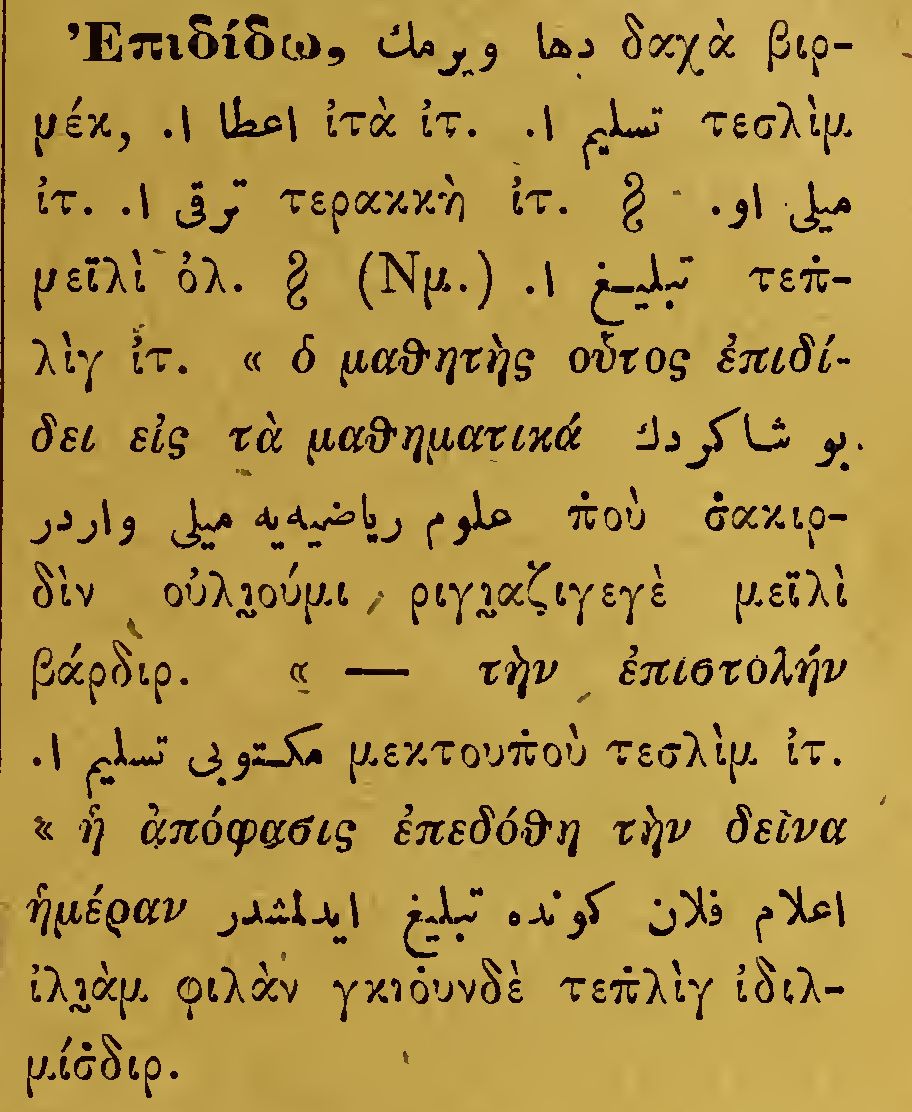 Ἐπιδίδω, دها ويرمك δαχὰ βιρ-
μέκ, اعطا ا. ἰτὰ ἰτ. تسليم ا. τεσλὶμ
ἰτ. ترقى ا. τερακκὴ ἰτ. § ميلى او.
μεϊλὶ ὀλ. § (Νμ.) تبليغ ا. τεπ̇-
λὶγ ἰτ. « ὁ μαθητὴς οὗτος ἐπιδί-
δει εἰς τὰ μαθηματικά بو شاكردك
علوم رياضيه‌يه ميلى واردر π̇οὺ σ̇ακιρ-
δὶν οὐλι̮ούμι ριγι̮αζιγεγὲ μεϊλὶ
βάρδιρ. « — τὴν ἐπιστολήν
مكتوبى تسليم ا. μεκτουπ̇οὺ τεσλὶμ ἰτ.
« ἡ ἀπόφασις ἐπεδόθη τὴν δεῖνα
ἡμέραν اعلام فلان كونده تبليغ ايدلمشدر
ἰλι̮ὰμ φιλὰν γκιο̇υνδὲ τεπ̇λὶγ ἰδιλ-
μίσ̇διρ.